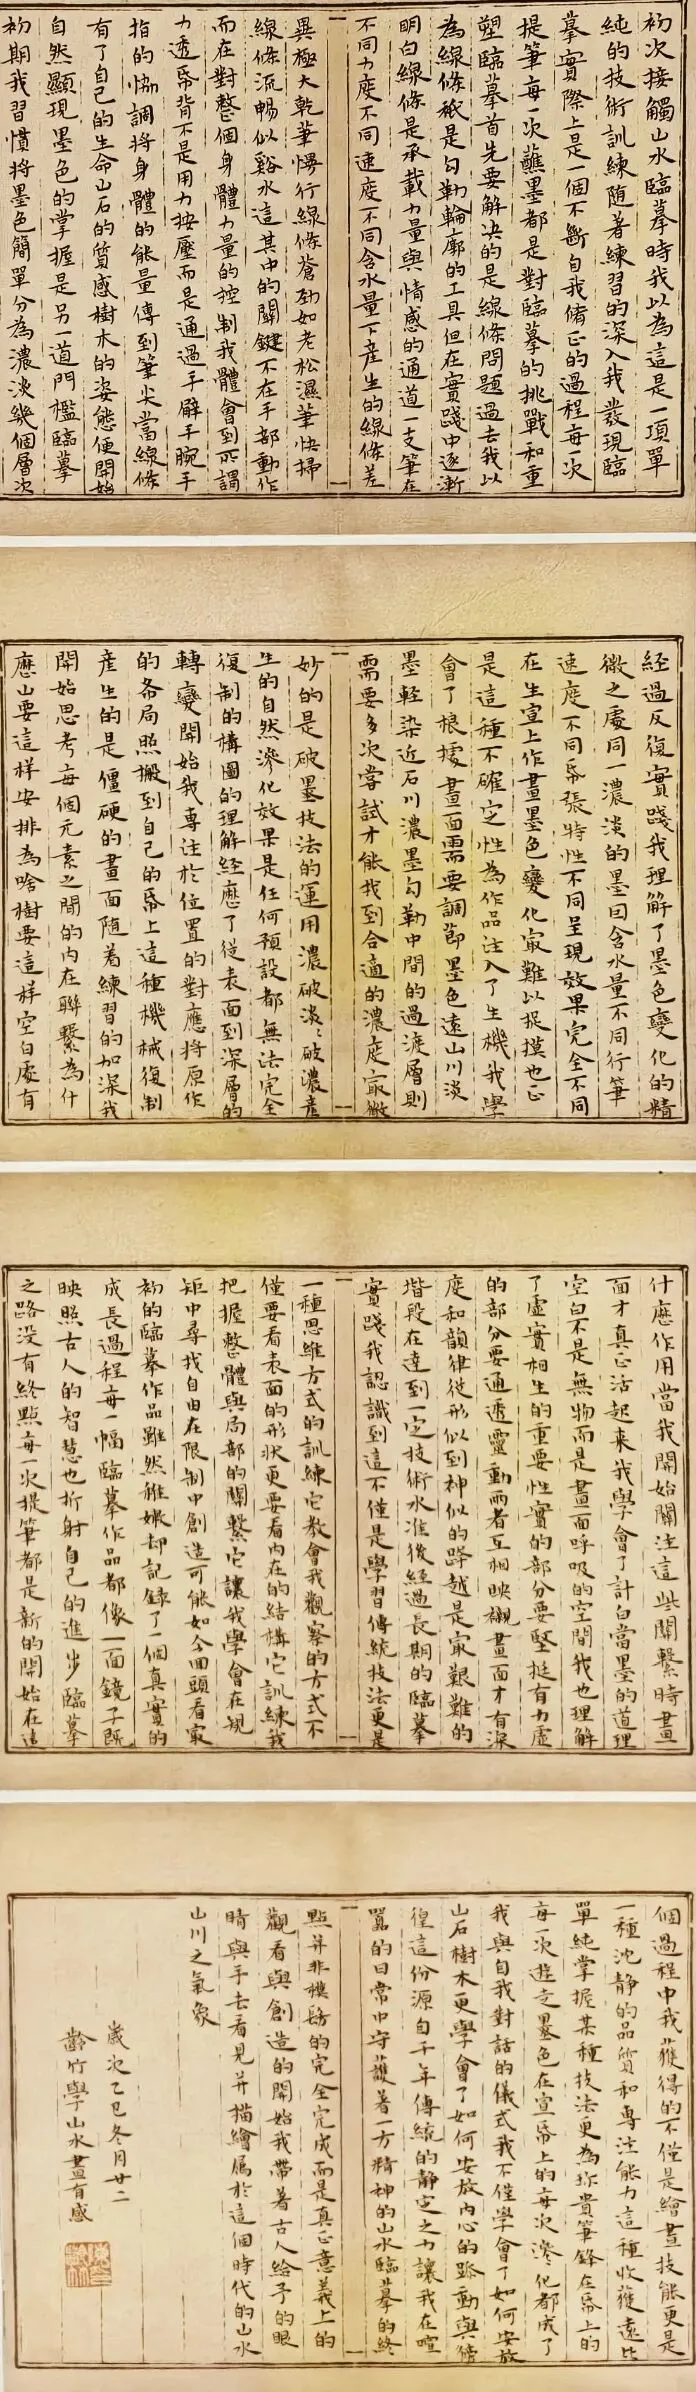 初次接觸山水臨摹時我以為這是一項單
純的技術訓練隨著練習的深入我發現臨
摹實際上是一個不斷自我修正的過程每一次
提筆每一次蘸墨都是對臨摹的挑戰和重
塑臨摹首先要解決的是線條問題過去我以
為線條祇是勾勒輪廓的工具但在實踐中逐漸
明白線條是承載力量與情感的通道一支筆在
不同力度不同速度不同含水量下產生的線條差
異極大乾筆慢行線條蒼勁如老松濕筆快掃
線條流暢似谿水這其中的關鍵不在手部動作
而在對整個身體力量的控制我體會到所謂
力透紙背不是用力按壓而是通過手臂手腕手
指的協調將身體的能量傳到筆尖當線條
有了自己的生命山石的質感樹木的姿態便開始
自然顯現墨色的掌握是另一道門檻臨摹
初期我習慣將墨色簡單分為濃淡幾個層次
經過反復實踐我理解了墨色變化的精
微之處同一濃淡的墨因含水量不同行筆
速度不同紙張特性不同呈現效果完全不同
在生宣上作畫墨色變化最難以捉摸也正
是這種不確定性為作品注入了生機我學
會了根據畫面需要調節墨色遠山川淡
墨輕染近石川濃墨勾勒中間的過渡層則
需要多次嘗試才能找到合適的濃度最微
妙的是破墨技法的運用濃破淡、破濃產
生的自然滲化效果是任何預設都無法完全
復制的構圖的理解經歷了從表面到深層的
轉變開始我專注於位置的對應將原作
的布局照搬到自己的紙上這種機械復制
產生的是僵硬的畫面隨着練習的加深我
開始思考每個元素之間的內在聯繫為什
麼山要這樣安排為啥樹要這樣空白處有
什麼作用當我開始關注這些關繫時畫
面才真正活起來我學會了計白當墨的道理
空白不是無物而是畫面呼吸的空間我也理解
了虛實相生的重要性實的部分要堅挺有力虛
的部分要通透靈動兩者互相映襯畫面才有深
度和韻律從形似到神似的跨越是最艱難的
階段在達到一定技術水准後經過長期的臨摹
實踐我認識到這不僅是學習傳統技法更是
一種思維方式的訓練它教會我觀察的方式不
僅要看表面的形狀更要看內在的結構它訓練我
把握整體與局部的關繫它讓我學會在規
矩中尋找自由在限制中創造可能如今回頭看最
初的臨摹作品雖然稚嫩却記録了一個真實的
成長過程每一幅臨摹作品都像一面鏡子既
映照古人的智慧也折射自己的進步臨摹
之路没有終點每一次提筆都是新的開始在這
個過程中我獲得的不僅是繪畫技能更是
一種沈静的品質和專注能力這種收獲遠比
單純掌握某種技法更為珍貴筆鋒在紙上的
每一次遊走墨色在宣紙上的每次滲化都成了
我與自我對話的儀式我不僅學會了如何安放
山石樹木更學會了如何安放內心的躁動與彷
徨這份源自千年傳統的静定之力讓我在喧
囂的日常中守護著一方精神的山水臨摹的終
點并非模仿的完全完成而是真正意義上的
觀看與創造的開始我帶著古人給予的眼
睛與手去看見并描繪屬於這個時代的山水
山川之氣象
歲次乙巳冬月廿二
齡竹學山水畫有感